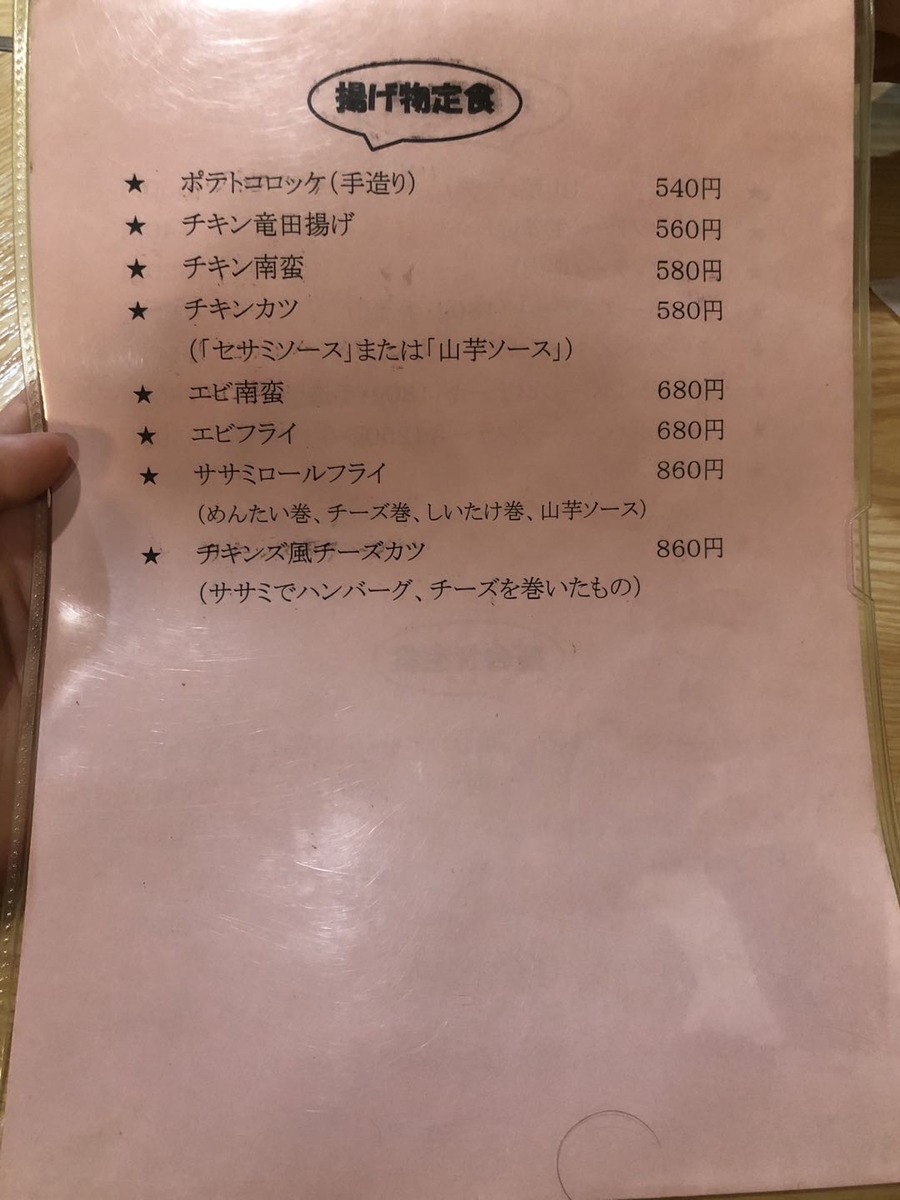 揚げ物定食
★ ポテトコロッケ(手造り) 540円
★ チキン竜田揚げ 560円
★ チキン南蛮 580円
★ チキンカツ 580円
(「セサミソース」または「山芋ソース」)
★ エビ南蛮 680円
★ エビフライ 680円
★ ササミロールフライ 860円
(めんたい巻、チーズ巻、しいたけ巻、山芋ソース)
★ チキンズ風チーズカツ 860円
(ササミでハンバーグ、チーズを巻いたもの)